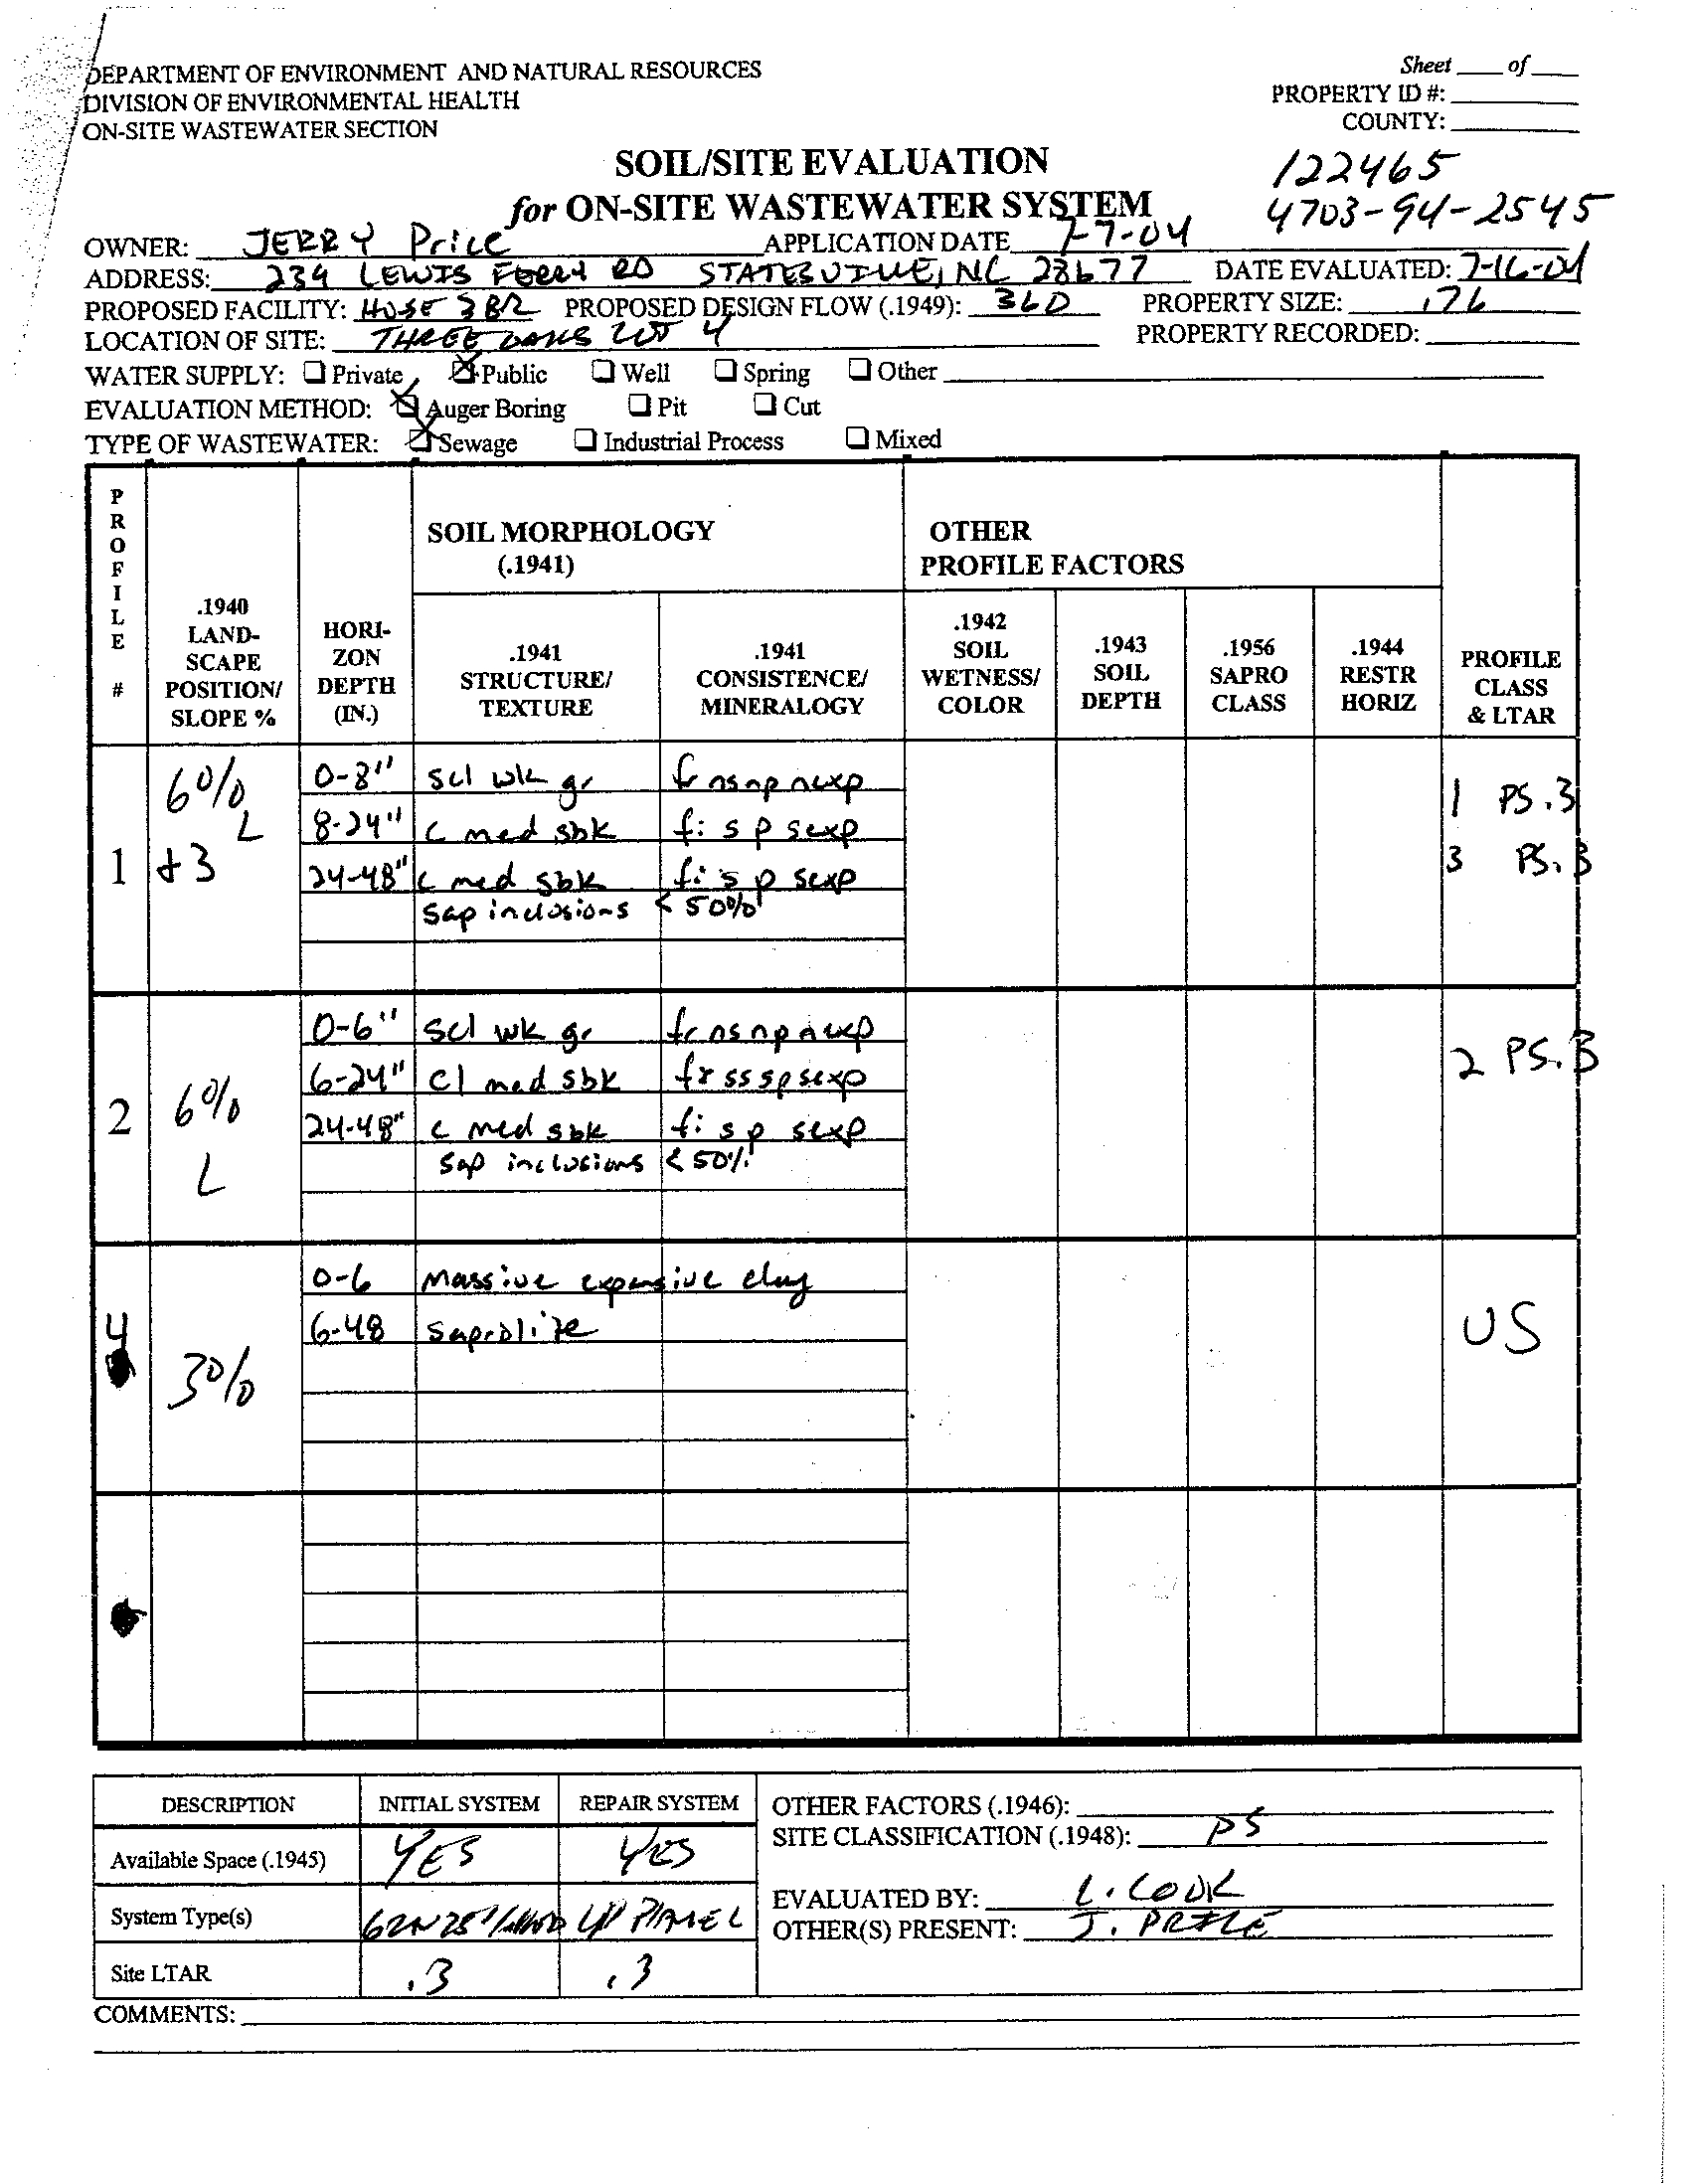 DEPARTMENT OF ENVIRONMENT AND NATURAL RESOURCES
DIVISION OF ENVIRONMENTAL HEALTH
ON-SITE WASTEWATER SECTION
Sheet ___ of ___
PROPERTY ID #:
COUNTY:
122465
4703-94-2545
SOIL/SITE EVALUATION
for ON-SITE WASTEWATER SYSTEM
OWNER: JERRY Price APPLICATION DATE 7-7-04
ADDRESS: 234 LEWIS FERRY RD STATESVILLE, NC 28677 DATE EVALUATED: 7-16-04
PROPOSED FACILITY: HOSE 3BR PROPOSED DESIGN FLOW (.1949): 360 PROPERTY SIZE: .76
LOCATION OF SITE: THREE OAKS LOT 4 PROPERTY RECORDED:
WATER SUPPLY: Private Public Well Spring Other
EVALUATION METHOD: Auger Boring Pit Cut
TYPE OF WASTEWATER: Sewage Industrial Process Mixed
PROFILE #
.1940 LAND-SCAPE POSITION/ SLOPE %
HORI-ZON DEPTH (IN.)
SOIL MORPHOLOGY (.1941)
OTHER PROFILE FACTORS
.1941 STRUCTURE/ TEXTURE
.1941 CONSISTENCE/ MINERALOGY
.1942 SOIL WETNESS/ COLOR
.1943 SOIL DEPTH
.1956 SAPRO CLASS
.1944 RESTR HORIZ
PROFILE CLASS & LTAR
1 +3 6% L
0-8" scl wk gr fr nsnp nexp 1 PS .3
8-24" c med sbk fi s p sexp
24-48" c med sbk fi s p sexp 3 PS .3
sap inclusions < 50%
2 6% L
0-6" scl wk gr fr nsnp nexp 2 PS .3
6-24" cl med sbk fr ss sp sexp
24-48" c med sbk fi s p sexp
sap inclusions < 50%
4 3%
0-6 Massive expansive clay US
6-48 saprolite
DESCRIPTION INITIAL SYSTEM REPAIR SYSTEM
Available Space (.1945) YES YES
System Type(s) PANEL
Site LTAR .3 .3
OTHER FACTORS (.1946):
SITE CLASSIFICATION (.1948): PS
EVALUATED BY: L. COOK
OTHER(S) PRESENT: J. PRICE
COMMENTS: